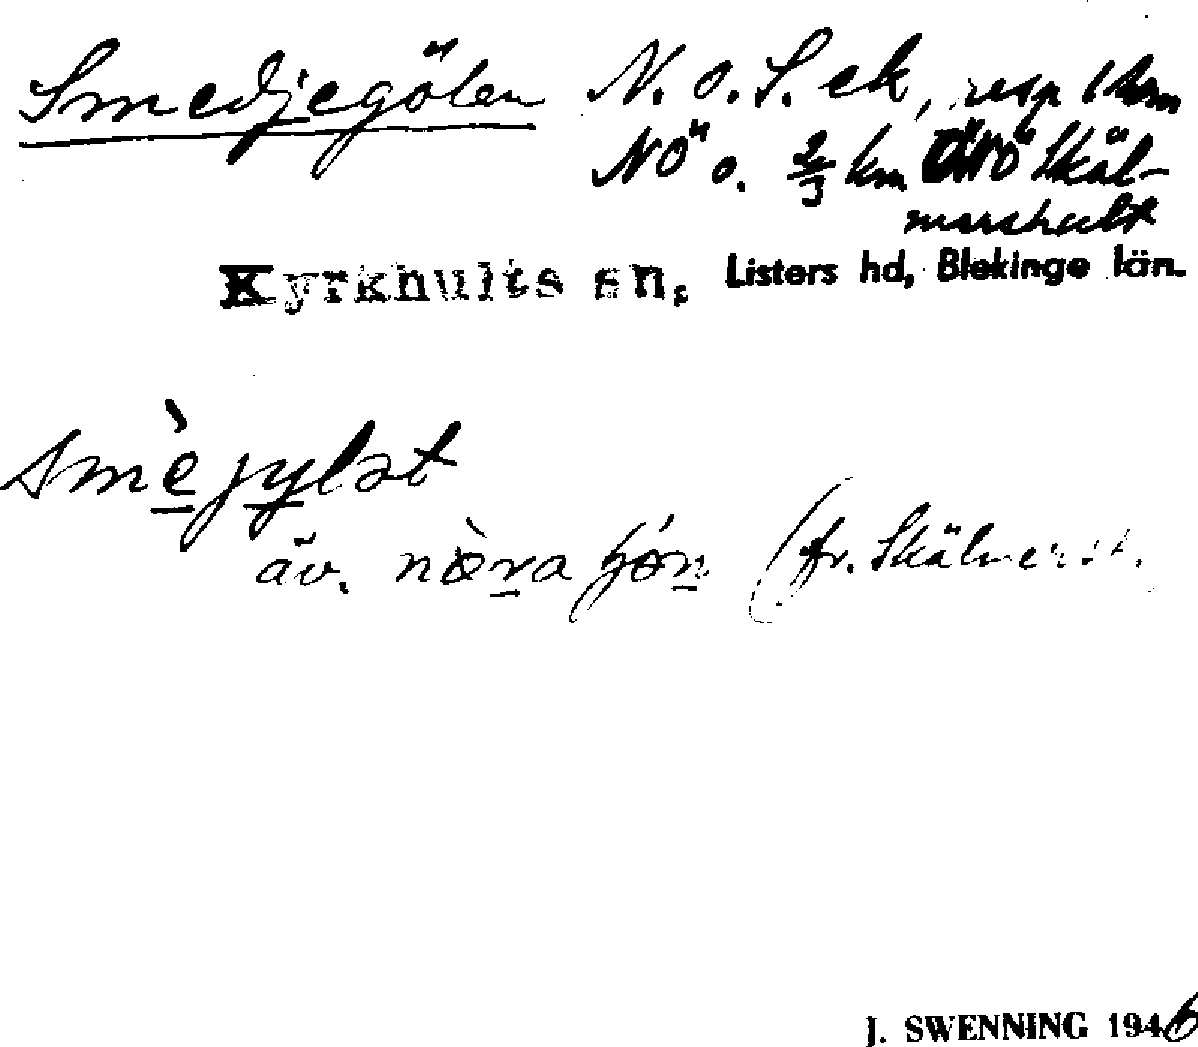 Smedjegölen N. o. S. ek, resp 1 km
NÖ o. 2/3 km NÖ Skäl-
marshult
Kyrkhults sn, Listers hd, Blekinge län.
smèjylst
äv. næ̀ra (fr.
J. SWENNING 1946